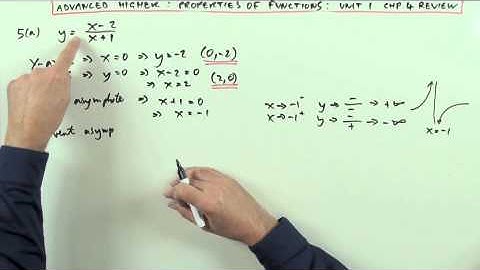 ADVANCED HIGHER : PROPERTIES OF FUNCTIONS : UNIT 1 CHP 4 REVIEW
5(a) y = x-2 / x+1
y-a ⇒ x=0 ⇒ y=-2 (0,-2)
⇒ y=0 ⇒ x-2=0 (2,0)
⇒ x=2
asymptote ⇒ x+1=0
⇒ x=-1
x→-1⁻ y→ -/- → +∞
x→-1⁺ y→ -/+ → -∞
x=-1
ent asymp